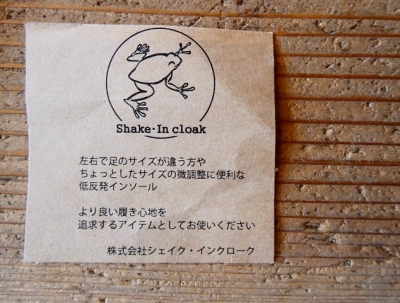 Shake-In cloak
左右で足のサイズが違う方や
ちょっとしたサイズの微調整に便利な
低反発インソール
より良い履き心地を
追求するアイテムとしてお使いください
株式会社シェイク・インクローク